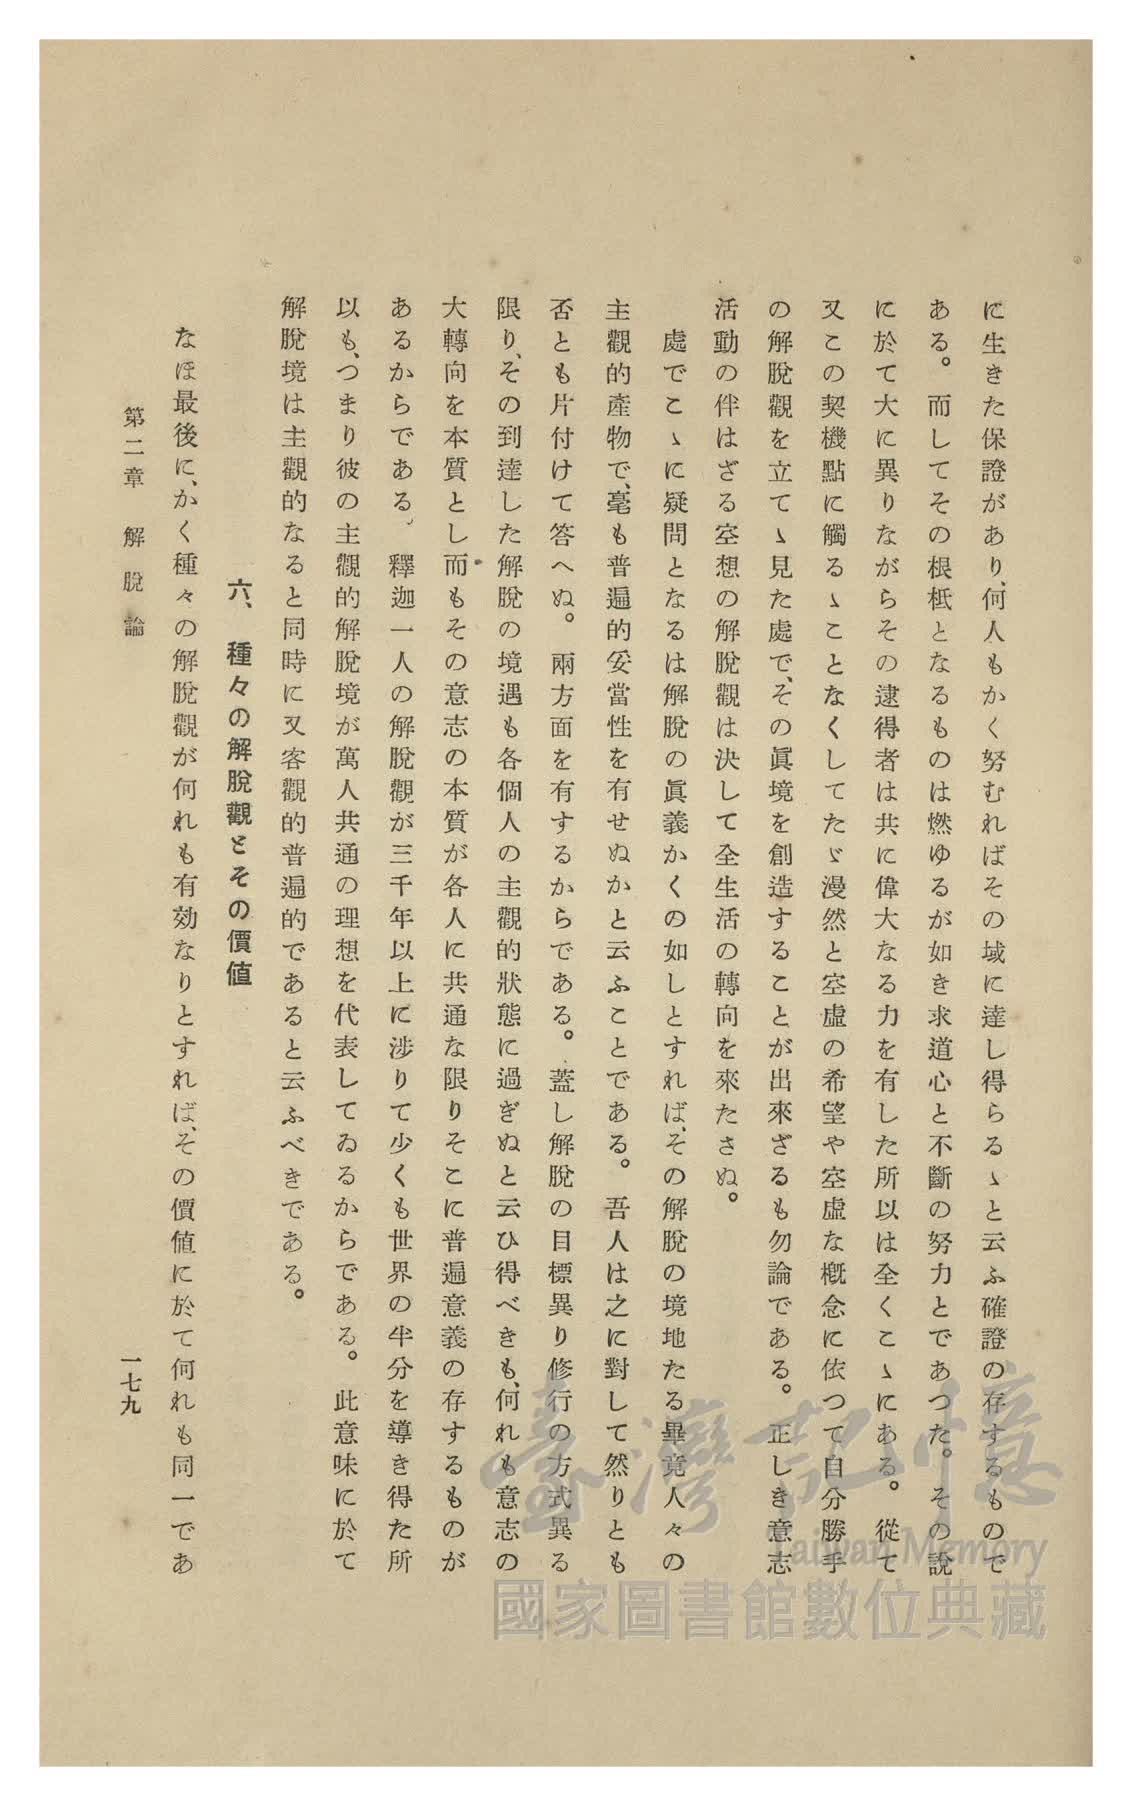 に生きた保證があり、何人もかく努むればその域に達し得らるゝと云ふ確證の存するもので
ある。而してその根柢となるものは燃ゆるが如き求道心と不斷の努力とであつた。その說
に於て大に異りながらその逮得者は共に偉大なる力を有した所以は全くこゝにある。從て
又この契機點に觸るゝことなくしてたゞ漫然と空虛の希望や空虛な槪念に依つて自分勝手
の解脫觀を立てゝ見た處で、その眞境を創造することが出來ざるも勿論である。正しき意志
活動の伴はざる空想の解脫觀は決して全生活の轉向を來たさぬ。
處でこゝに疑問となるは解脫の眞義かくの如しとすれば、その解脫の境地たる畢竟人々の
主觀的產物で、毫も普遍的妥當性を有せぬかと云ふことである。吾人は之に對して然りとも
否とも片付けて答へぬ。兩方面を有するからである。蓋し解脫の目標異り修行の方式異る
限り、その到達した解脫の境遇も各個人の主觀的狀態に過ぎぬと云ひ得べきも、何れも意志の
大轉向を本質とし而もその意志の本質が各人に共通な限りそこに普遍意義の存するものが
あるからである。釋迦一人の解脫觀が三千年以上に涉りて少くも世界の半分を導き得た所
以も、つまり彼の主觀的解脫境が萬人共通の理想を代表してゐるからである。此意味に於て
解脫境は主觀的なると同時に又客觀的普遍的であると云ふべきである。
六、種々の解脫觀とその價値
なほ最後に、かく種々の解脫觀が何れも有効なりとすれば、その價値に於て何れも同一であ
第二章 解脫論
一七九
臺灣記憶
Taiwan Memory
國家圖書館數位典藏